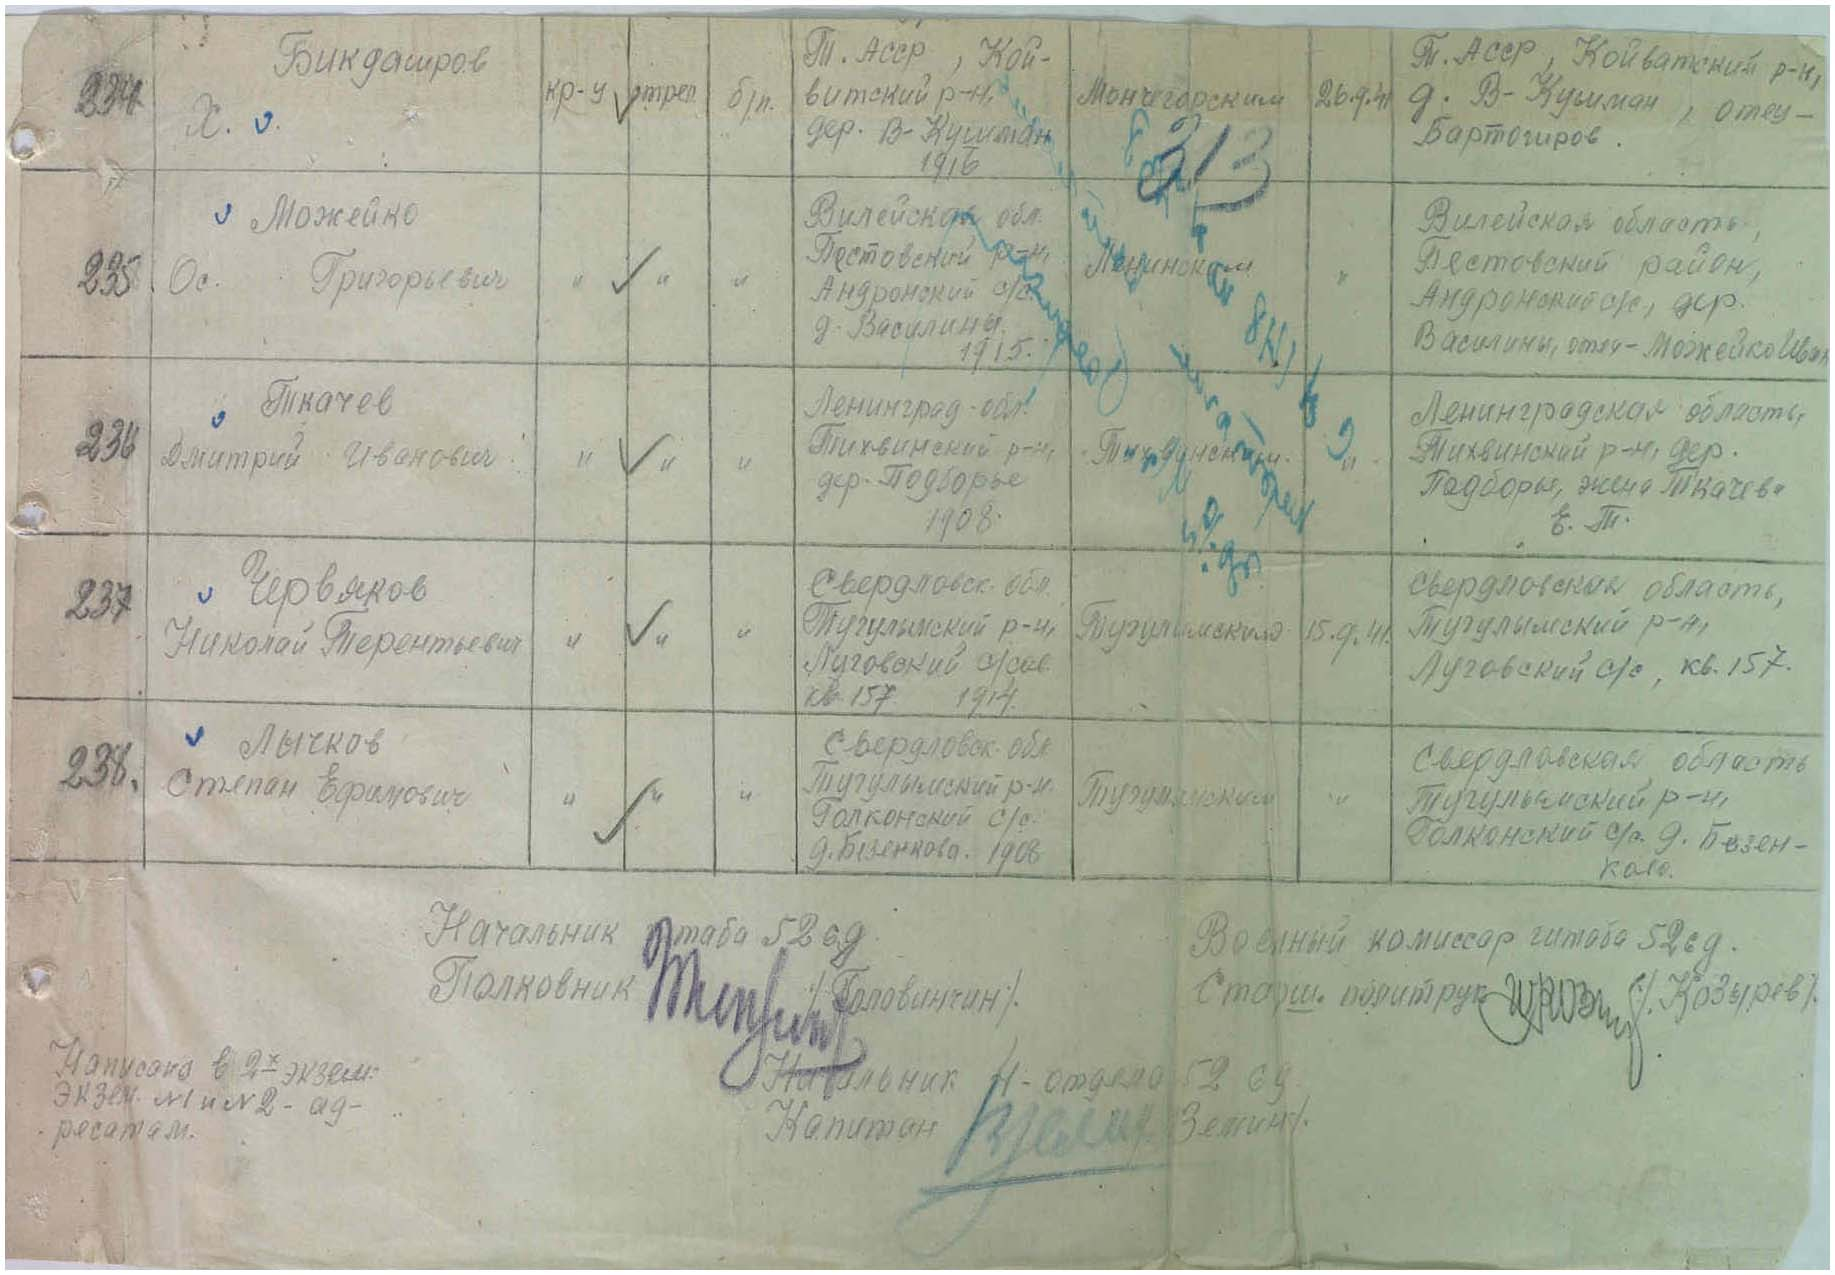 234 Бикдашров
Х.
кр-ц стрел. б/п.
Т. Асср, Кой-
витский р-н,
дер. В-Кушман
1916
Мончегорским 26.9.41
Т. Асср, Койватский р-н,
д. В-Кушман, отец-
Бартогиров.
313
235 Можейко
Ос. Григорьевич
" " "
Вилейская обл.
Пестовский р-н,
Андронский с/с
д. Василины
1915.
Ленинским "
Вилейская область,
Пестовский район,
Андронский с/с, дер.
Василины, отец-Можейко Иван
236 Ткачев
Дмитрий Иванович
" " "
Ленинград. обл.
Тихвинский р-н,
дер. Подборье
1908.
Тихвинским "
Ленинградская область,
Тихвинский р-н, дер.
Подборье, жена Ткачева
Е. Т.
237 Червяков
Николай Терентьевич
" " "
Свердловск. обл.
Тугулымский р-н,
Луговский с/сов.
кв. 157 1914.
Тугулымским 15.9.41.
Свердловская область,
Тугулымский р-н,
Луговский с/с, кв. 157.
238. Лычков
Степан Ефимович
" " "
Свердловск. обл.
Тугулымский р-н.
Галконский с/с.
д. Безенкова. 1908
Тугулымским "
Свердловская область
Тугулымский р-н,
Галконский с/с. д. Безен-
кова.
Начальник штаба 52 сд.
Полковник /Головинчин/.
Военный комиссар штаба 52 сд.
Старш. политрук /Козырев/.
Написано в 2х экзем.
Экзем. №1 и №2 - ад-
ресатам.
Начальник 4-отдела 52 сд.
Капитан /Земин/.